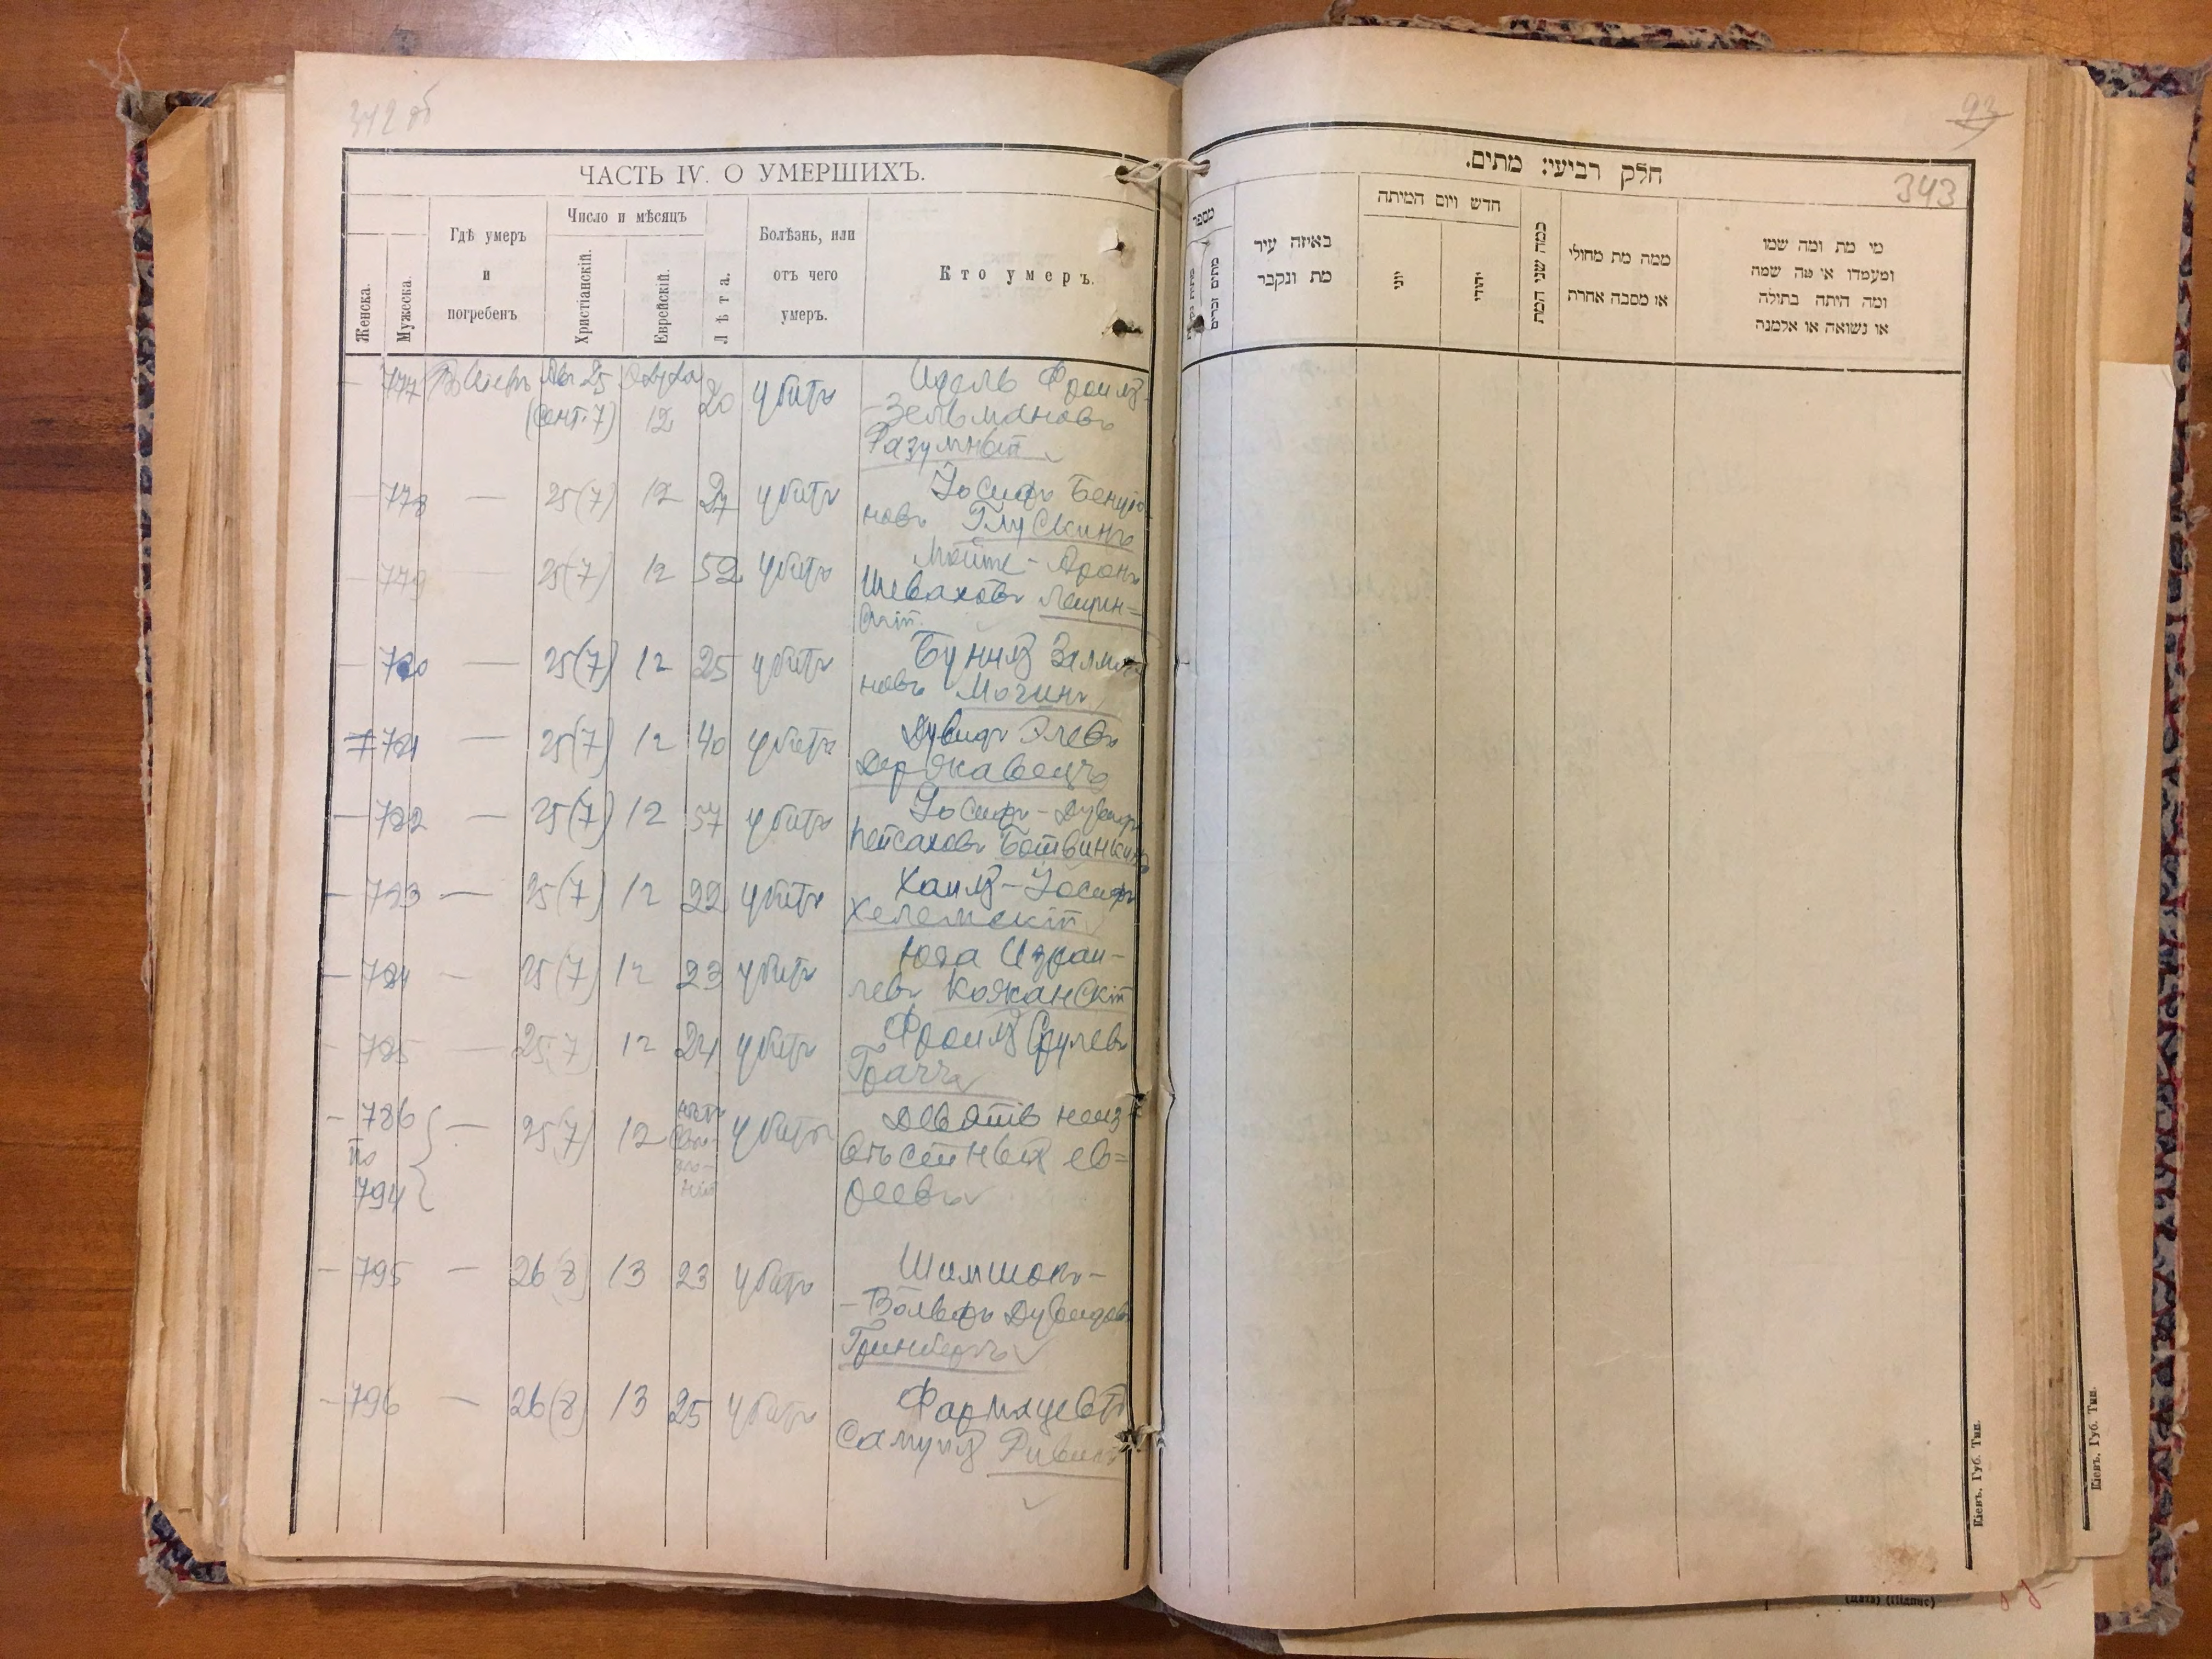 342 об
ЧАСТЬ IV. О УМЕРШИХЪ.
Женска.
Мужеска.
Гдѣ умеръ
и
погребенъ
Число и мѣсяцъ
Христіанскій.
Еврейскій.
Лѣта.
Болѣзнь, или
отъ чего
умеръ.
Кто умеръ.
- 777 Въ Кіевѣ Авг 25 Элула 20 убитъ Идель Фроимъ-
(сент. 7) 12 -Зельмановъ
Разумный
- 778 — 25(7) 12 27 убитъ Іосифъ Бенціо-
новъ Глускинъ
- 779 — 25(7) 12 52 убитъ Мойше-Аронъ
Шеваховъ
- 780 — 25(7) 12 25 убитъ Бунимъ Залма-
новъ Мочинъ
781 — 25(7) 12 40 убитъ Дувидъ Элевъ
Державецъ
- 782 — 25(7) 12 57 убитъ Іосифъ-Дувидъ
Пейсаховъ Ботвинкинъ
- 783 — 25(7) 12 22 убитъ Хаимъ-Іосифъ
Хелемскій
- 784 — 25(7) 12 23 убитъ Юда Израи-
левъ Кожанскій
- 785 — 25(7) 12 24 убитъ Фроимъ Срулевъ
Грачъ
- 786 — 25(7) 12 убитъ Девять неиз-
по вѣстныхъ ев=
794 реевъ
- 795 — 26(8) 13 23 убитъ Шимшонъ-
-Вольфъ Дувидовъ
Гринбергъ
- 796 — 26(8) 13 25 убитъ Фармацевтъ
Самуилъ Ривкинъ
93
343
חלק רביעי: מתים.
מספר
מתים זכרים
באיזה עיר
מת ונקבר
חדש ויום המיתה
יוני
יהודי
כמה שני המת
ממה מת מחולי
או מסבה אחרת
מי מת ומה שמו
ומעמדו או מה שמה
ומה היתה בתולה
או נשואה או אלמנה
Кіевъ. Губ. Тип.
Кіевъ. Губ. Тип.